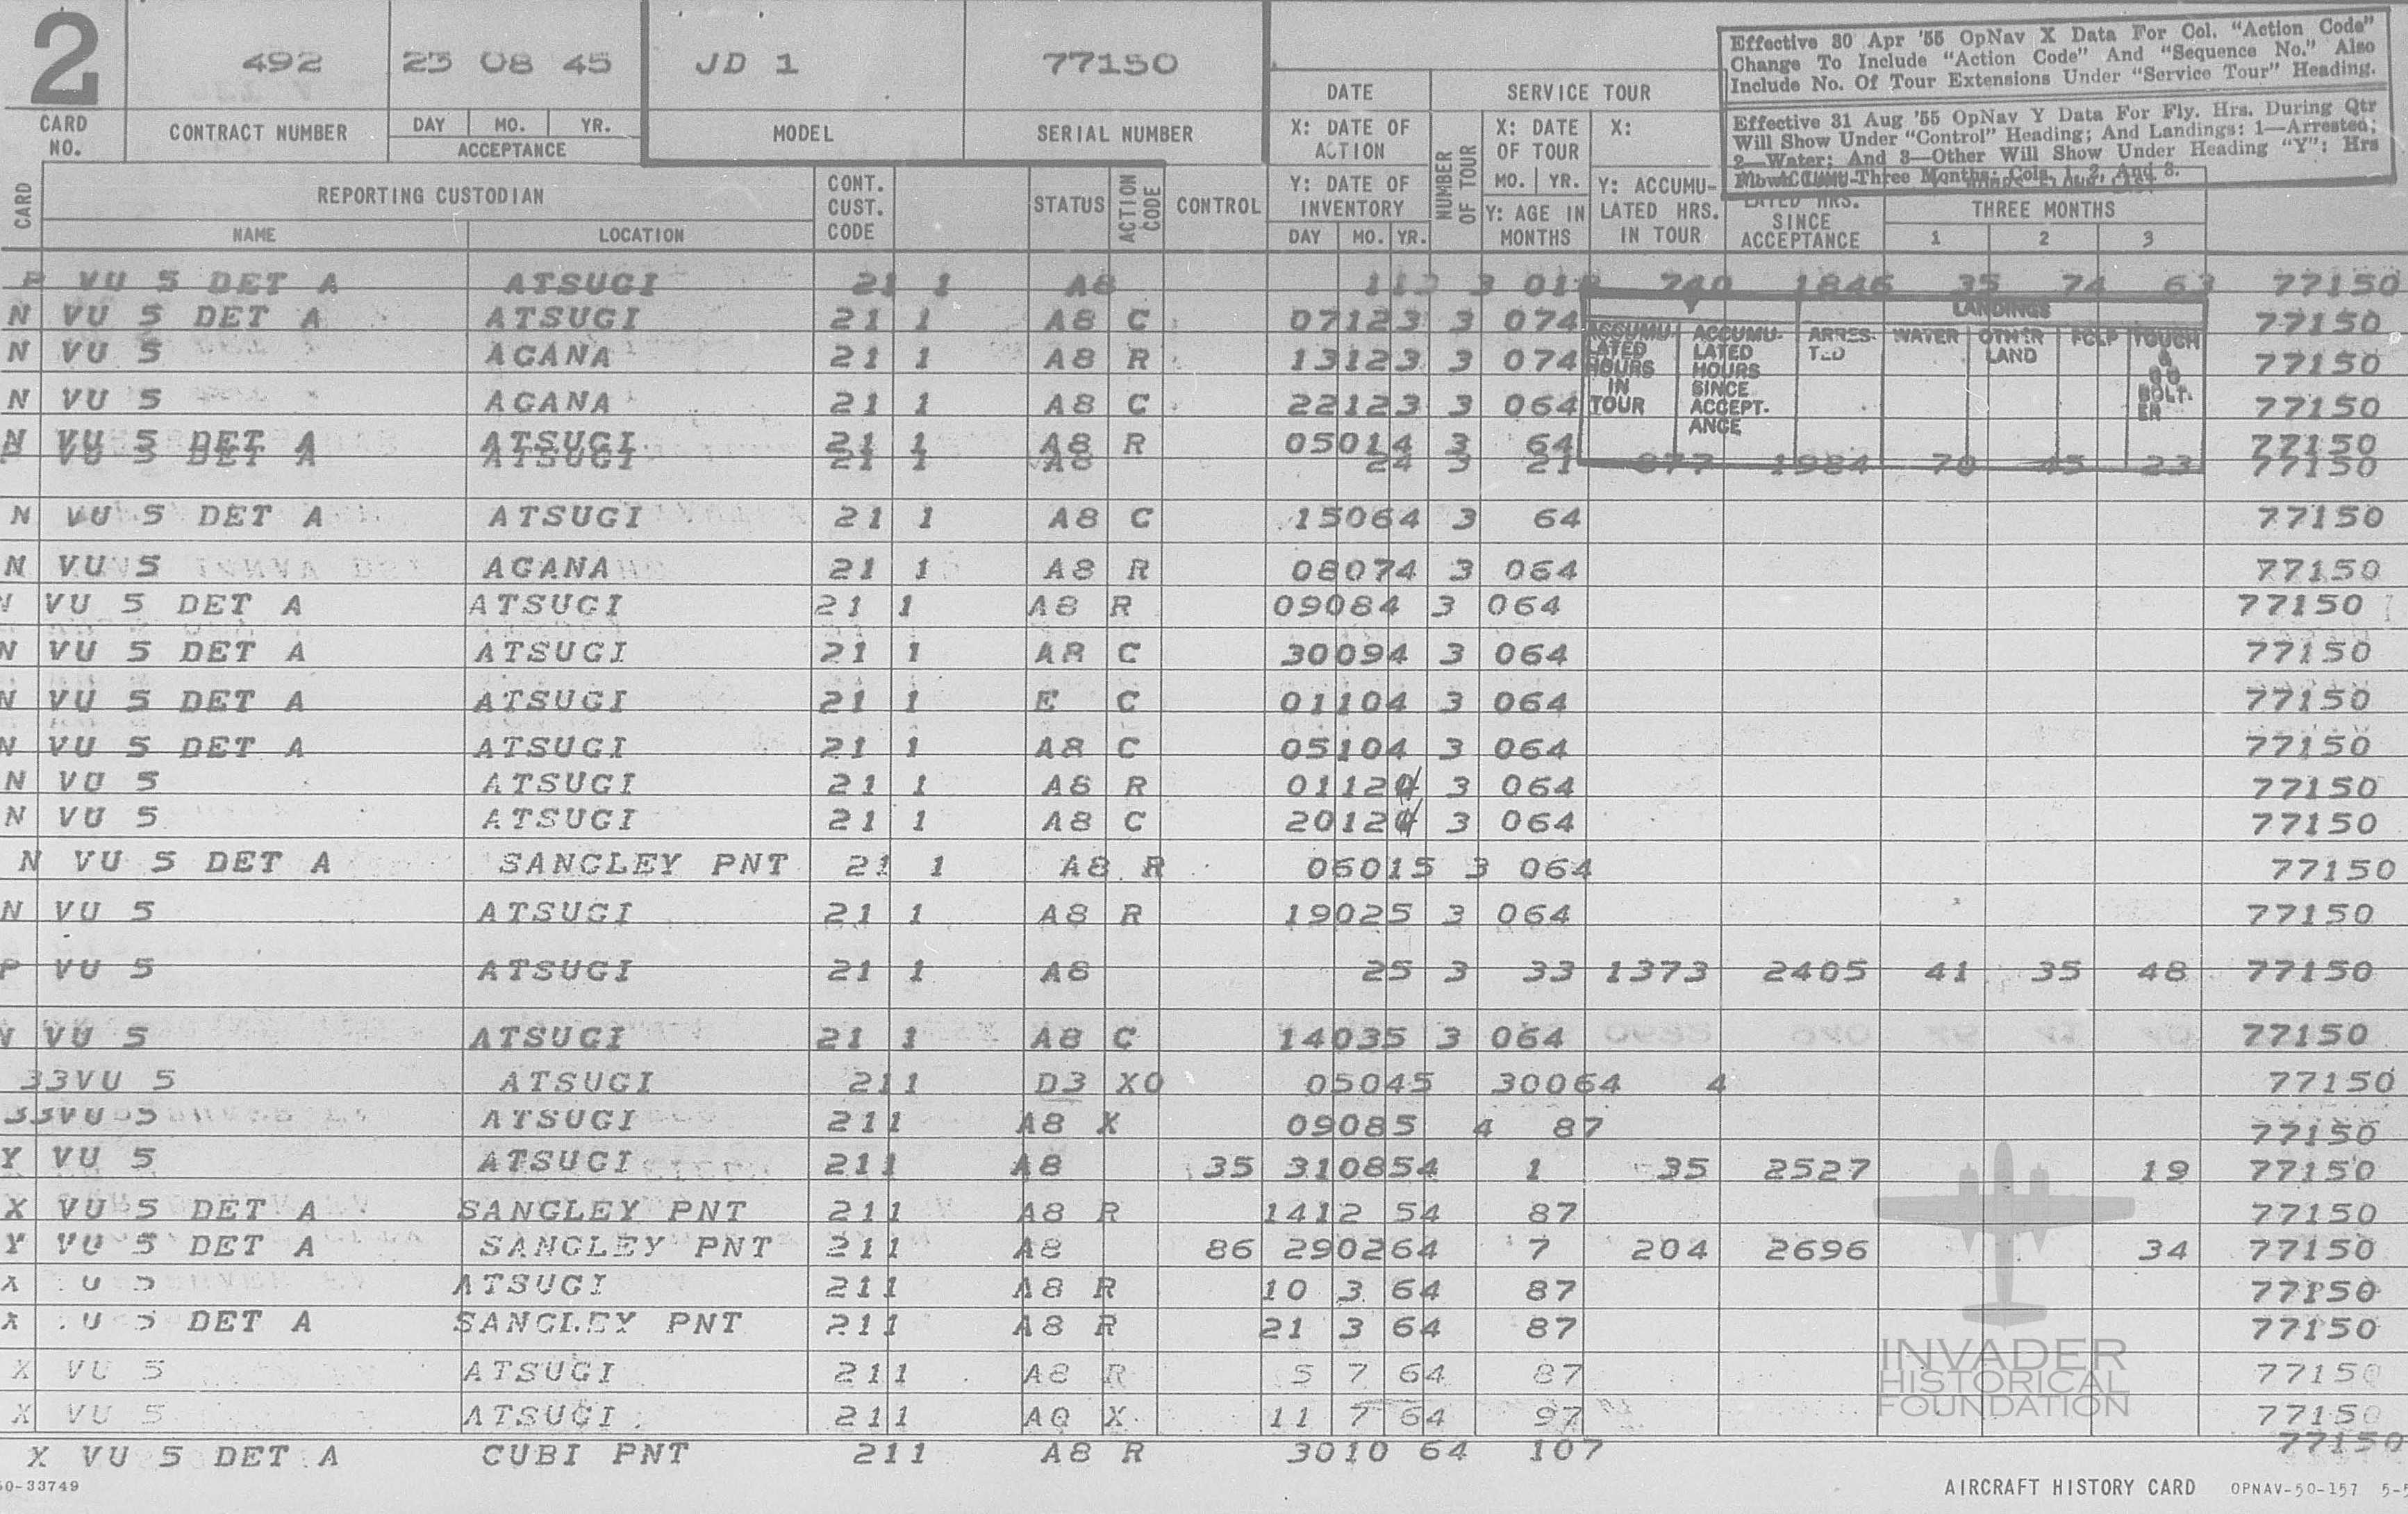 2 492 23 08 45 JD 1 77150
Effective 30 Apr '55 OpNav X Data For Col. "Action Code"
Change To Include "Action Code" And "Sequence No." Also
Include No. Of Tour Extensions Under "Service Tour" Heading.
Effective 31 Aug '55 OpNav Y Data For Fly. Hrs. During Qtr
Will Show Under "Control" Heading; And Landings: 1—Arrested;
2—Water; And 3—Other Will Show Under Heading "Y": Hrs
Three Months: Cols. 1, 2, And 3.
CARD NO. CONTRACT NUMBER DAY MO. YR. ACCEPTANCE MODEL SERIAL NUMBER
DATE SERVICE TOUR
X: DATE OF ACTION NUMBER OF TOUR X: DATE OF TOUR X:
CARD REPORTING CUSTODIAN CONT. CUST. CODE STATUS ACTION CODE CONTROL Y: DATE OF INVENTORY MO. YR. Y: ACCUMU-LATED HRS. IN TOUR LATED HRS. SINCE ACCEPTANCE THREE MONTHS
NAME LOCATION DAY MO. YR. Y: AGE IN MONTHS 1 2 3
P VU 5 DET A ATSUGI 21 1 A8 3 740 1846 35 74 63 77150
N VU 5 DET A ATSUGI 21 1 A8 C 07123 3 074 77150
LANDINGS
ACCUMU-LATED HOURS IN TOUR ACCUMU-LATED HOURS SINCE ACCEPT-ANCE ARRES-TED WATER OTHER LAND FCLP TOUCH & GO BOLT-ER
N VU 5 AGANA 21 1 A8 R 13123 3 074 77150
N VU 5 AGANA 21 1 A8 C 22123 3 064 77150
N VU 5 DET A ATSUGI 21 1 A8 R 05014 3 64 77150
VU 5 DET A ATSUGI 21 1 A8 24 3 21 877 1984 70 45 23 77150
N VU 5 DET A ATSUGI 21 1 A8 C 15064 3 64 77150
N VU 5 AGANA 21 1 A8 R 08074 3 064 77150
N VU 5 DET A ATSUGI 21 1 A8 R 09084 3 064 77150
N VU 5 DET A ATSUGI 21 1 A8 C 30094 3 064 77150
N VU 5 DET A ATSUGI 21 1 E C 01104 3 064 77150
N VU 5 DET A ATSUGI 21 1 A8 C 05104 3 064 77150
N VU 5 ATSUGI 21 1 A8 R 01124 3 064 77150
N VU 5 ATSUGI 21 1 A8 C 20124 3 064 77150
N VU 5 DET A SANGLEY PNT 21 1 A8 R 06015 3 064 77150
N VU 5 ATSUGI 21 1 A8 R 19025 3 064 77150
P VU 5 ATSUGI 21 1 A8 25 3 33 1373 2405 41 35 48 77150
N VU 5 ATSUGI 21 1 A8 C 14035 3 064 77150
33VU 5 ATSUGI 211 D3 X0 05045 30064 4 77150
33VU 5 ATSUGI 211 A8 X 09085 4 87 77150
Y VU 5 ATSUGI 211 A8 35 310854 1 35 2527 19 77150
X VU 5 DET A SANGLEY PNT 211 A8 R 1412 54 87 77150
Y VU 5 DET A SANGLEY PNT 211 A8 86 290264 7 204 2696 34 77150
X U 5 ATSUGI 211 A8 R 10 3 64 87 77150
X U 5 DET A SANGLEY PNT 211 A8 R 21 3 64 87 77150
X VU 5 ATSUGI 211 A8 R 5 7 64 87 77150
X VU 5 ATSUGI 211 A0 X 11 7 64 97 77150
X VU 5 DET A CUBI PNT 211 A8 R 3010 64 107 77150
INVADER
HISTORICAL
FOUNDATION
50-33749 AIRCRAFT HISTORY CARD OPNAV-50-157 5-5